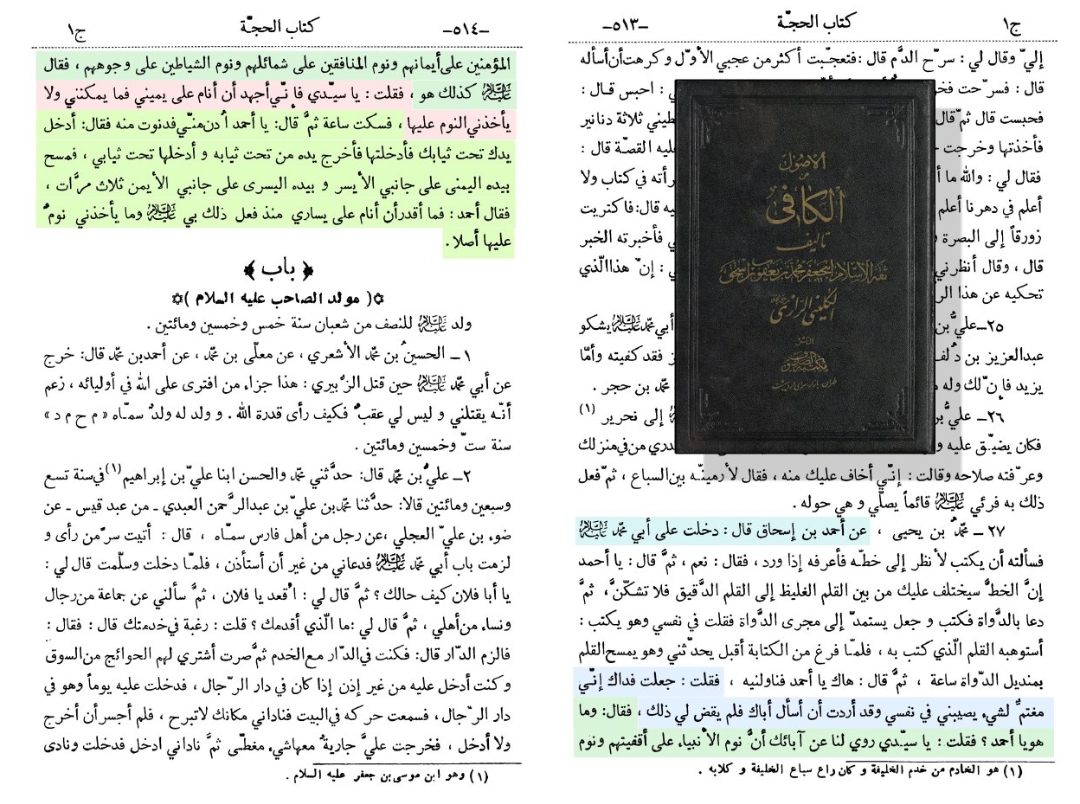 ج١
كتاب الحجّة
-٥١٣-
إليَّ وقال لي : سرّح الدَّم قال : فتعجّبت أكثر من عجبي الأوّل وكرهت أن أسأله
قال : فسرّحت
: احبس قال :
فحبست قال ثمَّ قال
ثلاثة دنانير
فأخذتها وخرجت
القصّة قال :
فقال لي : والله ما أ
في كتاب ولا
أعلم في دهرنا أعلم
قال: فاكتريت
زورقاً إلى البصرة و
فأخبرته الخبر
قال ، وقال أنظرني
: إنّ هذا الّذي
تحكيه عن هذا
٢٥ــ عليُّ
أبي محمّد عليه السلام يشكو
عبدالعزيز بن دلف
فقد كفيته وأمّا
يزيد فإنّ لك وله م
محمّد بن حجر .
٢٦ــ عليُّ
إلى نحرير (١)
فكان يضيّق عليه و
من في منزلك
وعرّفته صلاحه وقالت : إنّي أخاف عليك منه ، فقال لأرمينّه بين السباع ، ثمّ فعل
ذلك به فرئي عليه السلام قائماً يصلّي و هي حوله .
٢٧ ــ محمّدُ بن يحيى ، عن أحمد بن إسحاق قال : دخلت على أبي محمّد عليه السلام
فسألته أن يكتب لأنظر إلى خطّه فأعرفه إذا ورد ، فقال : نعم ، ثمَّ قال : يا أحمد
إنَّ الخطَّ سيختلف عليك من بين القلم الغليظ إلى القلم الدَّقيق فلا تشكّنَّ ، ثمَّ
دعا بالدَّواة فكتب و جعل يستمدّ إلى مجرى الدَّواة فقلت في نفسي وهو يكتب :
أستوهبه القلم الّذي كتب به ، فلمّا فرغ من الكتابة أقبل يحدّثني وهو يمسح القلم
بمنديل الدّواة ساعة ، ثمَّ قال : هاك يا أحمد فناولنيه ، فقلت : جعلت فداك إنّي
مغتمٌّ لشيء يصيبني في نفسي وقد أردت أن أسأل أباك فلم يقض لي ذلك ، فقال: وما
هو يا أحمد ؟ فقلت : يا سيّدي روي لنا عن آبائك أنَّ نوم الأنبياء على أقفيتهم ونوم
(١) هو الخادم من خدم الخليفة و كان راع سباع الخليفة و كلابه .
الاصول
من
الكافي
تاليف
ثقة الاسلام ابيجعفر محمد بن يعقوب بن اسحق
الكليني الرازي
الناشر
ج١
كتاب الحجّة
-٥١٤-
المؤمنين على أيمانهم ونوم المنافقين على شمائلهم ونوم الشياطين على وجوههم ، فقال
عليه السلام كذلك هو ، فقلت : يا سيّدي فإنّي أجهد أن أنام على يميني فما يمكنني ولا
يأخذني النوم عليها ، فسكت ساعة ثمَّ قال: يا أحمد اُدن منّي فدنوت منه فقال: أدخل
يدك تحت ثيابك فأدخلتها فأخرج يده من تحت ثيابه و أدخلها تحت ثيابي ، فمسح
بيده اليمنى على جانبي الأيسر و بيده اليسرى على جانبي الأيمن ثلاث مرَّات ،
فقال أحمد : فما أقدر أن أنام على يساري منذ فعل ذلك بي عليه السلام وما يأخذني نومٌ
عليها أصلا .
﴿ باب ﴾
✡( مولد الصاحب عليه السلام )✡
ولد عليه السلام للنصف من شعبان سنة خمس وخمسين ومائتين .
١ــ الحسينُ بن محمّد الأشعري ، عن معلّى بن محمّد ، عن أحمد بن محمّد قال: خرج
عن أبي محمّد عليه السلام حين قتل الزُّبيري : هذا جزاء من افترى على الله في أوليائه ، زعم
أنّه يقتلني و ليس لي عقبٌ فكيف رأى قدرة الله . و ولد له ولدٌ سمّاه « م ح م د »
سنة ستّ وخمسين ومائتين .
٢ــ عليُّ بن محمّد قال: حدَّثني محمّد والحسن ابنا عليِّ بن إبراهيم(١) في سنة تسع
وسبعين ومائتين قالا: حدَّثنا محمّد بن عليِّ بن عبدالرَّحمن العبدي ـ من عبد قيس ـ عن
ضوء بن عليّ العجلي، عن رجل من أهل فارس سمّاه ، قال : أتيت سرَّ من رأى و
لزمت باب أبي محمّد عليه السلام فدعاني من غير أن أستأذن ، فلمّا دخلت وسلّمت قال لي :
يا أبا فلان كيف حالك ؟ ثمَّ قال لي : اُقعد يا فلان ، ثمَّ سألني عن جماعة من رجال
ونساء من أهلي ، ثمَّ قال لي : ما الّذي أقدمك ؟ قلت : رغبة في خدمتك قال : فقال :
فالزم الدَّار قال: فكنت في الدَّار مع الخدم ثمَّ صرت أشتري لهم الحوائج من السوق
وكنت أدخل عليه من غير إذن إذا كان في دار الرِّجال ، فدخلت عليه يوماً وهو في
دار الرِّجال، فسمعت حركه في البيت فناداني مكانك لا تبرح ، فلم أجسر أن أخرج
ولا أدخل ، فخرجت عليَّ جاريةٌ معها شيء مغطّى ثمَّ ناداني ادخل فدخلت ونادى
(١) وهو ابن موسى بن جعفر عليه السلام .